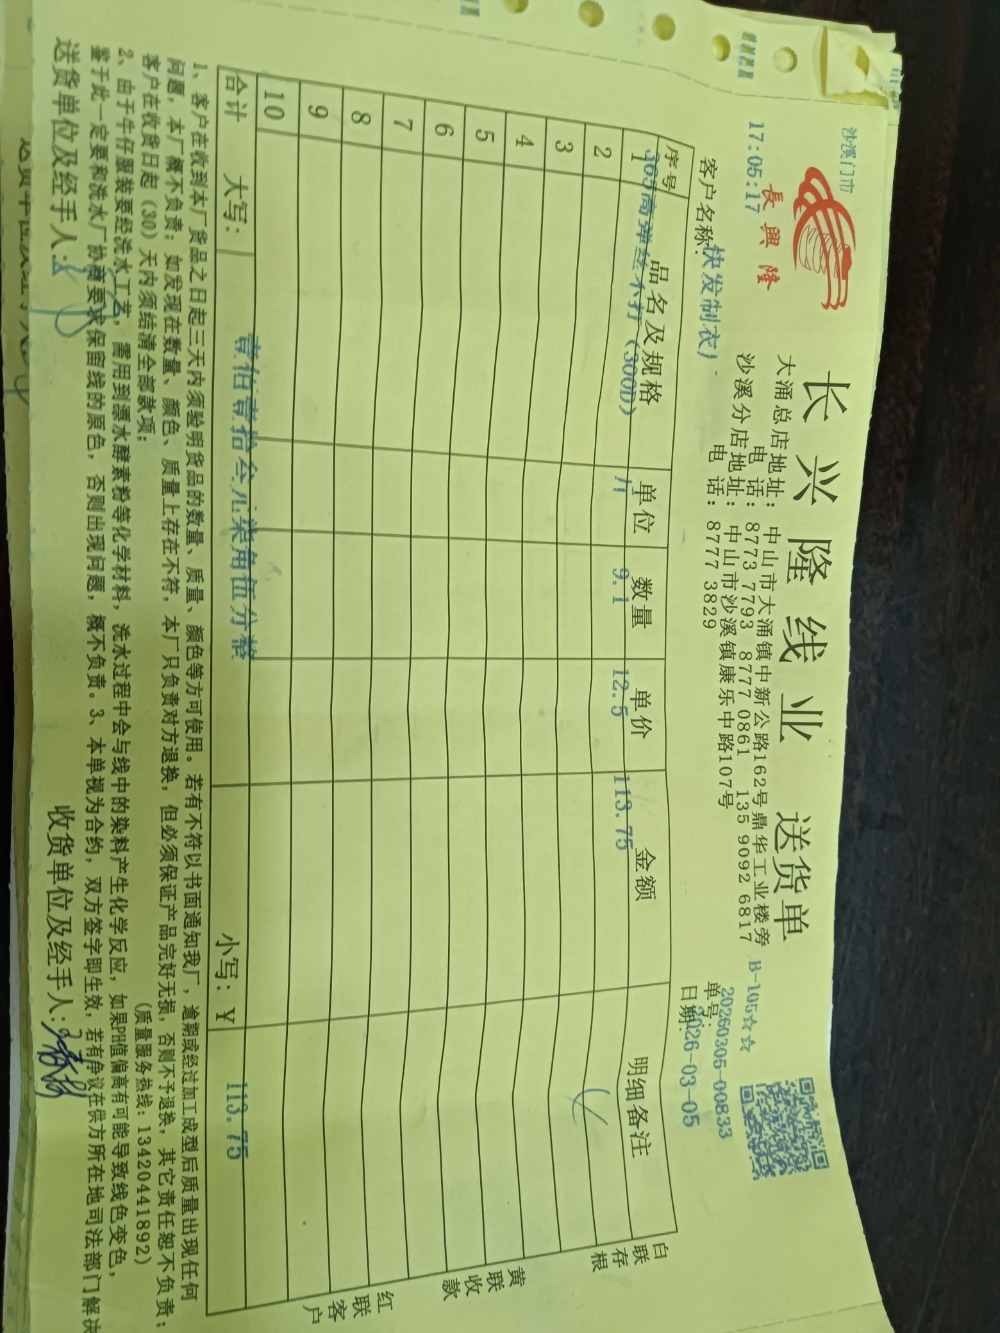 沙溪门市
17:05:17
長興隆
长兴隆线业 送货单
大涌总店地址：中山市大涌镇中新公路162号鼎华工业楼旁
电 话：8773 7793 8777 0861 135 9092 6817
沙溪分店地址：中山市沙溪镇康乐中路107号
电 话：8777 3829
B-105☆☆
单号：20260305-00833
日期：2026-03-05
客户名称：快发制衣厂
序号 品名及规格 单位 数量 单价 金额 明细备注
1 365高弹丝不打(300D) 斤 9.1 12.5 113.75
2
3
4
5
6
7
8
9
10
合计 大写： 壹佰壹拾叁元柒角伍分整 小写：¥ 113.75
白联存根
黄联收款
红联客户
1、客户在收到本厂货品之日起三天内须验明货品的数量、质量、颜色等方可使用。若有不符以书面通知我厂，逾期或经过加工成型后质量出现任何
问题，本厂概不负责；如发现在数量、颜色、质量上存在不符，本厂只负责对方退换，但必须保证产品完好无损，否则不予退换，其它责任恕不负责；
客户在收货日起（30）天内须结清全部款项； （质量服务热线：13420441892）
2、由于牛仔服装要经洗水工艺，需用到漂水酵素粉等化学材料，洗水过程中会与线中的染料产生化学反应，如果PH值偏高有可能导致线色变色，
鉴于此一定要和洗水厂协商要求保留线的原色，否则出现问题，概不负责。3、本单视为合约，双方签字即生效，若有争议在供方所在地司法部门解决
送货单位及经手人： 收货单位及经手人：